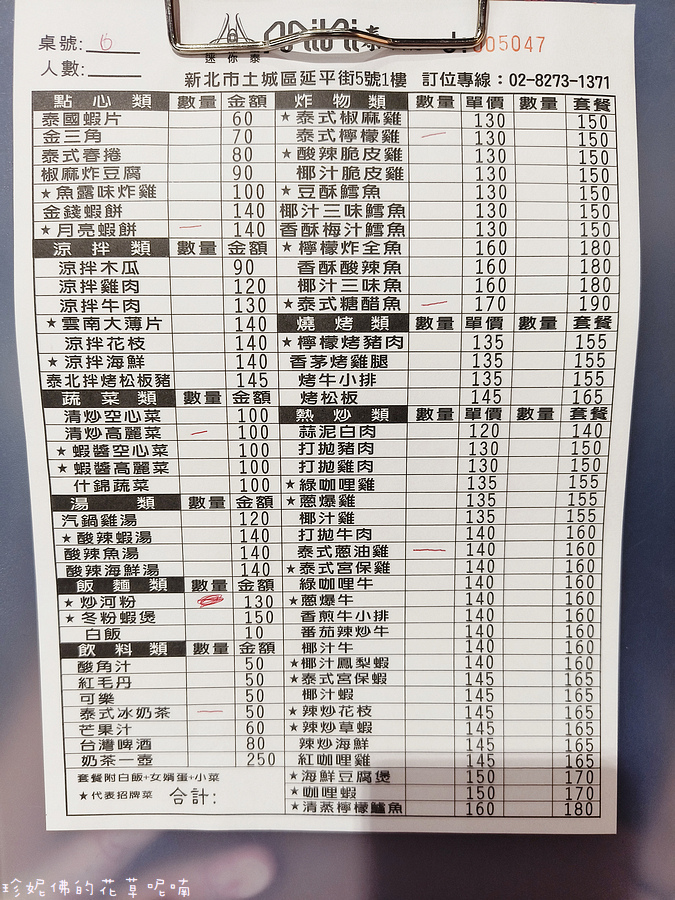 桌號: 6
迷你泰
MiNi泰
005047
人數:
新北市土城區延平街5號1樓 訂位專線：02-8273-1371
點心類 數量 金額
泰國蝦片 60
金三角 70
泰式春捲 80
椒麻炸豆腐 90
★魚露味炸雞 100
金錢蝦餅 140
★月亮蝦餅 一 140
涼拌類 數量 金額
涼拌木瓜 90
涼拌雞肉 120
涼拌牛肉 130
★雲南大薄片 140
涼拌花枝 140
★涼拌海鮮 140
泰北拌烤松板豬 145
蔬菜類 數量 金額
清炒空心菜 100
清炒高麗菜 一 100
★蝦醬空心菜 100
★蝦醬高麗菜 100
什錦蔬菜 100
湯類 數量 金額
汽鍋雞湯 120
★酸辣蝦湯 140
酸辣魚湯 140
酸辣海鮮湯 140
飯麵類 數量 金額
★炒河粉 130
★冬粉蝦煲 150
白飯 10
飲料類 數量 金額
酸角汁 50
紅毛丹 50
可樂 50
泰式冰奶茶 一 50
芒果汁 60
台灣啤酒 80
奶茶一壺 250
套餐附白飯+女婿蛋+小菜
★代表招牌菜 合計:
炸物類 數量 單價 數量 套餐
★泰式椒麻雞 130 150
泰式檸檬雞 一 130 150
★酸辣脆皮雞 130 150
椰汁脆皮雞 130 150
★豆酥鱈魚 130 150
椰汁三味鱈魚 130 150
香酥梅汁鱈魚 130 150
★檸檬炸全魚 160 180
香酥酸辣魚 160 180
椰汁三味魚 160 180
★泰式糖醋魚 一 170 190
燒烤類 數量 單價 數量 套餐
★檸檬烤豬肉 135 155
香茅烤雞腿 135 155
烤牛小排 135 155
烤松板 145 165
熱炒類 數量 單價 數量 套餐
蒜泥白肉 120 140
打拋豬肉 130 150
打拋雞肉 130 150
★綠咖哩雞 135 155
★蔥爆雞 135 155
椰汁雞 135 155
打拋牛肉 140 160
泰式蔥油雞 一 140 160
★泰式宮保雞 140 160
綠咖哩牛 140 160
★蔥爆牛 140 160
香煎牛小排 140 160
番茄辣炒牛 140 160
椰汁牛 140 160
★椰汁鳳梨蝦 140 160
★泰式宮保蝦 145 165
椰汁蝦 145 165
★辣炒花枝 145 165
★辣炒草蝦 145 165
辣炒海鮮 145 165
紅咖哩雞 145 165
★海鮮豆腐煲 150 170
★咖哩蝦 150 170
★清蒸檸檬鱸魚 160 180
珍妮佛的花草呢喃